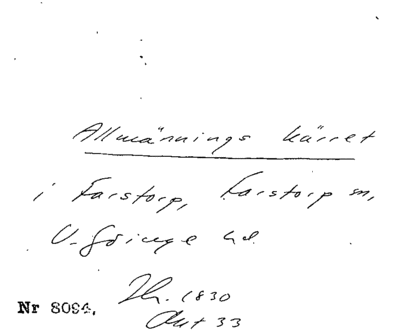 Allmännings kärret
i Farstorp, Farstorp sn,
V. Göinge hd.
Th. 1830
Akt 33
Nr 8094.